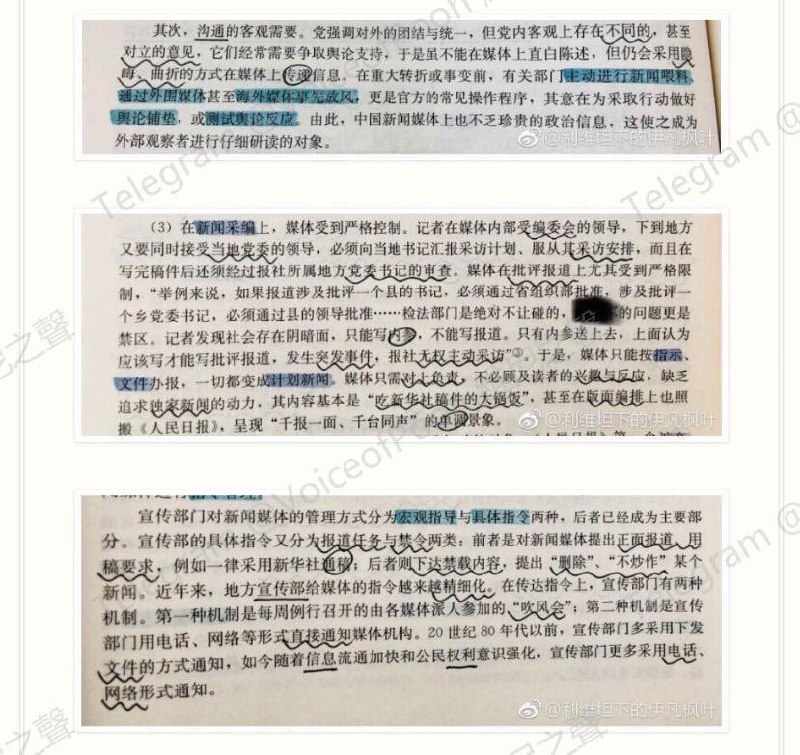 其次，沟通的客观需要。党强调对外的团结与统一，但党内客观上存在不同的，甚至
对立的意见，它们经常需要争取舆论支持，于是虽不能在媒体上直白陈述，但仍会采用隐
晦、曲折的方式在媒体上传递信息。在重大转折或事变前，有关部门主动进行新闻喂料，
通过外围媒体甚至海外媒体率先放风，更是官方的常见操作程序，其意在为采取行动做好
舆论铺垫，或测试舆论反应。由此，中国新闻媒体上也不乏珍贵的政治信息，这使之成为
外部观察者进行仔细研读的对象。
@利维坦下的伊凡枫叶
（3）在新闻采编上，媒体受到严格控制。记者在媒体内部受编委会的领导，下到地方
又要同时接受当地党委的领导，必须向当地书记汇报采访计划、服从其采访安排，而且在
写完稿件后还须经过报社所属地方党委书记的审查。媒体在批评报道上尤其受到严格限
制，“举例来说，如果报道涉及批评一个县的书记，必须通过省组织部批准，涉及批评一
个乡党委书记，必须通过县的领导批准……检法部门是绝对不让碰的，的问题更是
禁区。记者发现社会存在阴暗面，只能写内参，不能写报道。只有内参送上去，上面认为
应该写才能写批评报道，发生突发事件，报社无权主动采访”③。于是，媒体只能按指示、
文件办报，一切都变成计划新闻。媒体只需对上负责，不必顾及读者的兴趣与反应，缺乏
追求独家新闻的动力，其内容基本是“吃新华社稿件的大锅饭”，甚至在版面编排上也照
搬《人民日报》，呈现“千报一面、千台同声”的单调景象。
@利维坦下的伊凡枫叶
宣传部门对新闻媒体的管理方式分为宏观指导与具体指令两种，后者已经成为主要部
分。宣传部的具体指令又分为报道任务与禁令两类：前者是对新闻媒体提出正面报道、用
稿要求，例如一律采用新华社通稿；后者则下达禁载内容，提出“删除”、“不炒作”某个
新闻。近年来，地方宣传部给媒体的指令越来越精细化。在传达指令上，宣传部门有两种
机制。第一种机制是每周例行召开的由各媒体派人参加的，“吹风会”；第二种机制是宣传
部门用电话、网络等形式直接通知媒体机构。20世纪80年代以前，宣传部门多采用下发
文件的方式通知，如今随着信息流通加快和公民权利意识强化，宣传部门更多采用电话、
网络形式通知。
@利维坦下的伊凡枫叶